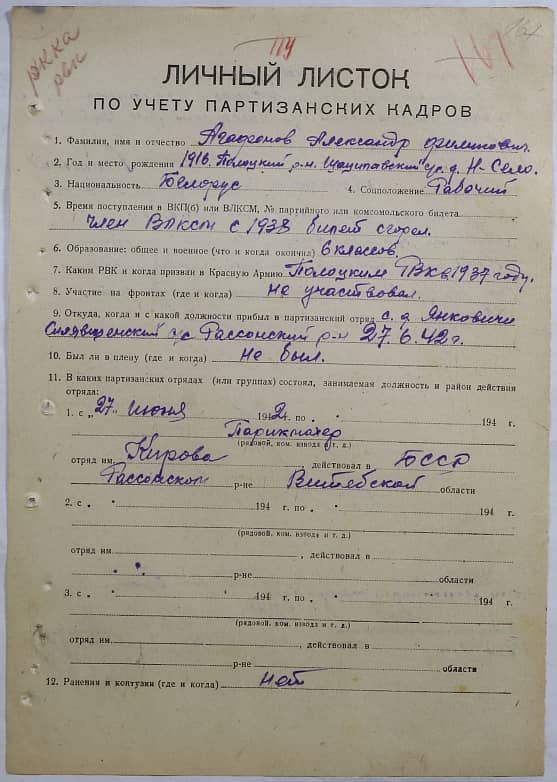 РККА
РВК
ПУ
161
ЛИЧНЫЙ ЛИСТОК
ПО УЧЕТУ ПАРТИЗАНСКИХ КАДРОВ
1. Фамилия, имя и отчество Агафонов Александр Филипович.
2. Год и место рождения 1916, Полоцкий р-н. с/с. д. Н-Село.
3. Национальность Белорус 4. Соцположение Рабочий
5. Время поступления в ВКП(б) или ВЛКСМ, № партийного или комсомольского билета
член ВЛКСМ с 1938 билет сгорел.
6. Образование: общее и военное (что и когда окончил) 6 классов.
7. Каким РВК и когда призван в Красную Армию Полоцким РВК в 1937 году.
8. Участие на фронтах (где и когда) не участвовал.
9. Откуда, когда и с какой должности прибыл в партизанский отряд с. д. Янковичи
с/с Рассонский р-н 27.6.42 г.
10. Был ли в плену (где и когда) не был.
11. В каких партизанских отрядах (или группах) состоял, занимаемая должность и район действия
отряда:
1. с „27" июня 1942 г. по " " 194 г.
Парикмахер
(рядовой, ком. взвода и т. д.)
отряд им. Кирова действовал в БССР
Рассонском р-не Витебской области
2. с " " 194 г. по " " 194 г.
(рядовой, ком. взвода и т. д.)
отряд им. , действовал в
р-не области
3. с " " 194 г. по " " 194 г.
(рядовой, ком. взвода и т. д.)
отряд им. , действовал в
р-не области
12. Ранения и контузии (где и когда) нет